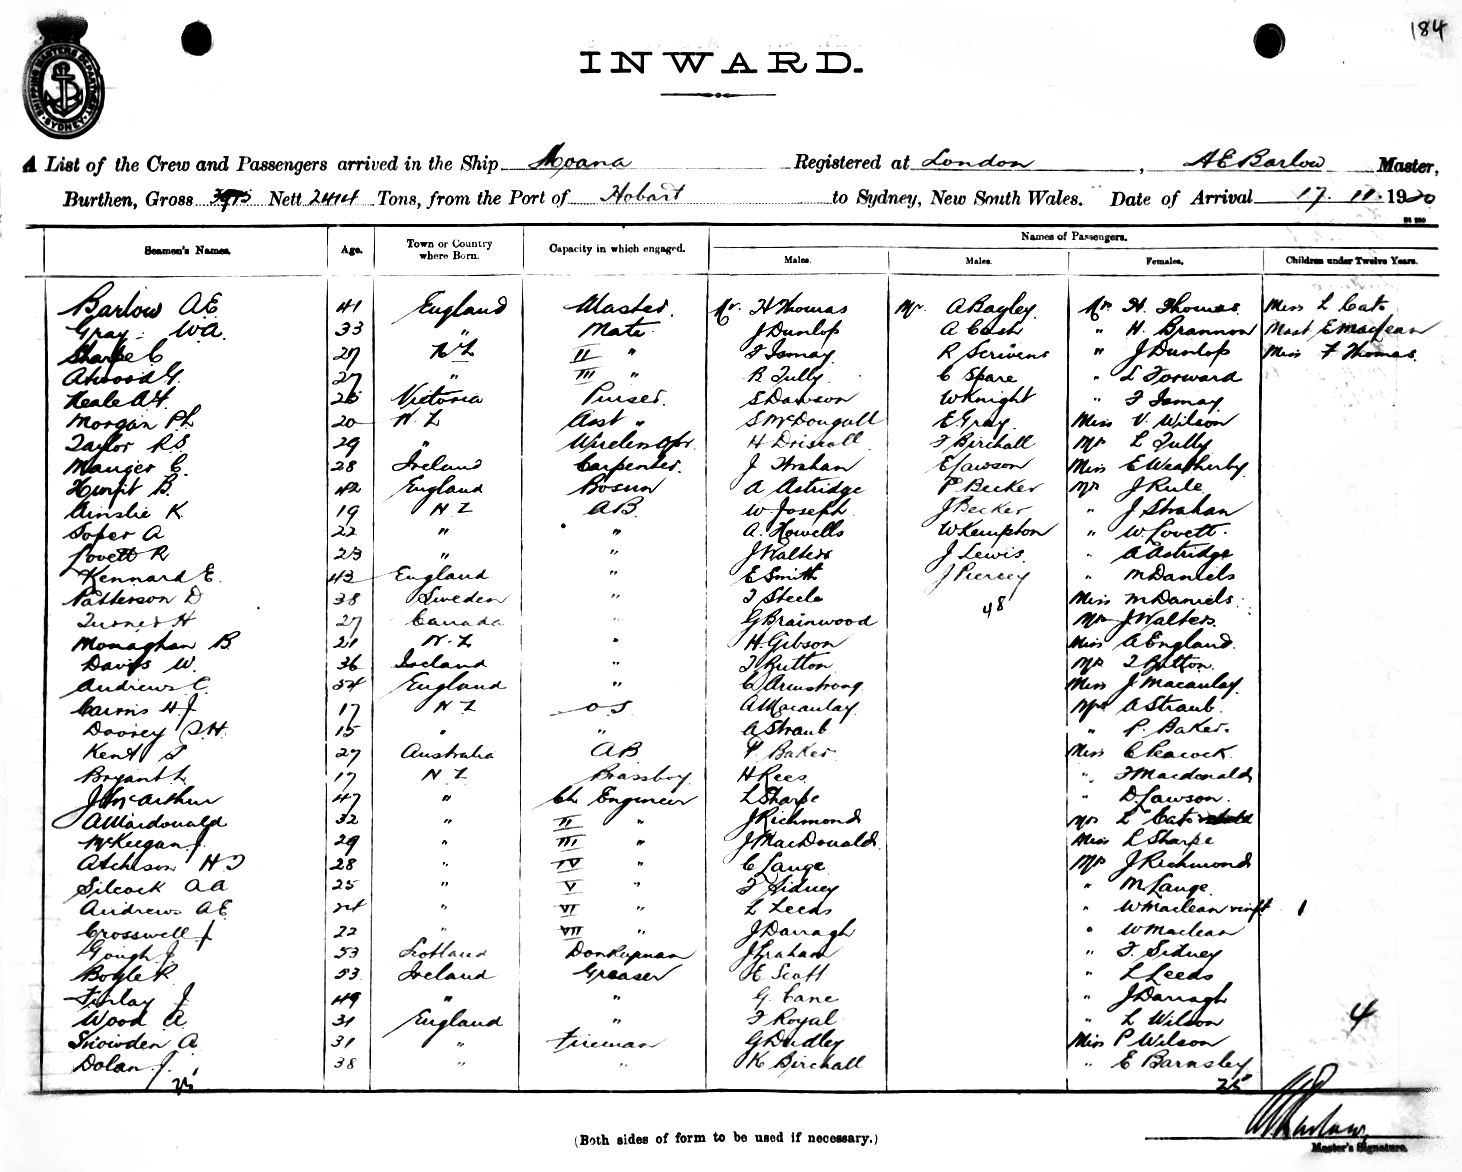 184
SHIPPING MASTERS DEPARTMENT SYDNEY
INWARD.
A List of the Crew and Passengers arrived in the Ship Moana Registered at London, A E Barlow Master,
Burthen, Gross Nett 2414 Tons, from the Port of Hobart to Sydney, New South Wales. Date of Arrival 17. 11. 1920
Names of Passengers.
Seamen's Names. Age. Town or Country where Born. Capacity in which engaged. Males. Males. Females. Children under Twelve Years.
Barlow A E. 41 England Master. Mr. H Thomas Mr. A Bagley Mrs H. Thomas. Miss L Cato
Gray. W A. 33 " Mate J Dunlop A Cash " H. Brannon Mast E Maclean
Sharpe C 27 N Z II " F Ismay. R Scrivens " J Dunlop Miss F Thomas.
Atwood G. 27 " III " R Tully. C Spare " L Forward
Neale A F. 26 Victoria Purser. S Dawson W Knight " F Ismay
Morgan Ph 20 N. Z Asst " S McDougall E Gray. Miss V. Wilson
Taylor R S. 29 " Wireless Opr. H Driscoll F Birchall Mrs L Tully
Manger C. 28 Ireland Carpenter. J Strahan E Lawson Miss E Weatherby
B. 42 England Bosun A Astridge P Becker Mrs J Rule
Ainslie K 19 N Z A B. W Joseph. J Becker " J Strahan
Soper A 22 " " A. Howells W Kempton " W. Lovett.
Lovett R 23 " " J Walters J Lewis. " A Astridge
Kennard E. 43 England " E Smith J Piercey " M Daniels
Patterson D 38 Sweden " F Steele 48 Miss M Daniels.
Turner H 27 Canada " G Brainwood Mrs J Walters.
Monaghan B 21 N. Z " H. Gibson Miss A England.
Davis W. 36 Ireland " F Button Mrs F Button.
Andrews C. 34 England " C Armstrong Miss J Macaulay.
Cairns H J 17 N Z O S A Macaulay. Mrs A Straub.
Doorey S. H. 15 " " A Straub " P. Baker.
Kent S 27 Australia A B P Baker Miss C Peacock.
Bryant L 17 N Z Brassboy. H Rees " F Macdonald
J McArthur 47 " Ch Engineer L Sharpe " D. Lawson.
A Macdonald 32 " II " J Richmond Mrs L Cato
McKeegan J. 29 " III " J MacDonald Miss L Sharpe
Atchison H J 28 " IV " C Lange Mrs J Richmond
Silcock A A 25 " V " F Sidney " M Lange.
Andrews A E 24 " VI " L Leeds " W Maclean 1
Crosswell J 22 " VII " J Darragh " W Maclean
Gough J. 53 Scotland Donkeyman J Graham " F. Sidney
Boyle P. 53 Ireland Greaser E Scott " L Leeds
Finlay J 49 " " G. Cane " J Darragh
Wood A. 31 England " F Royal " L Wilson 4
Snowden A 31 " Fireman G Dudley Miss P Wilson
Dolan J. 38 " " K Birchall " E Barnsby
35 35
A E Barlow
(Both sides of form to be used if necessary.)
Master's Signature.